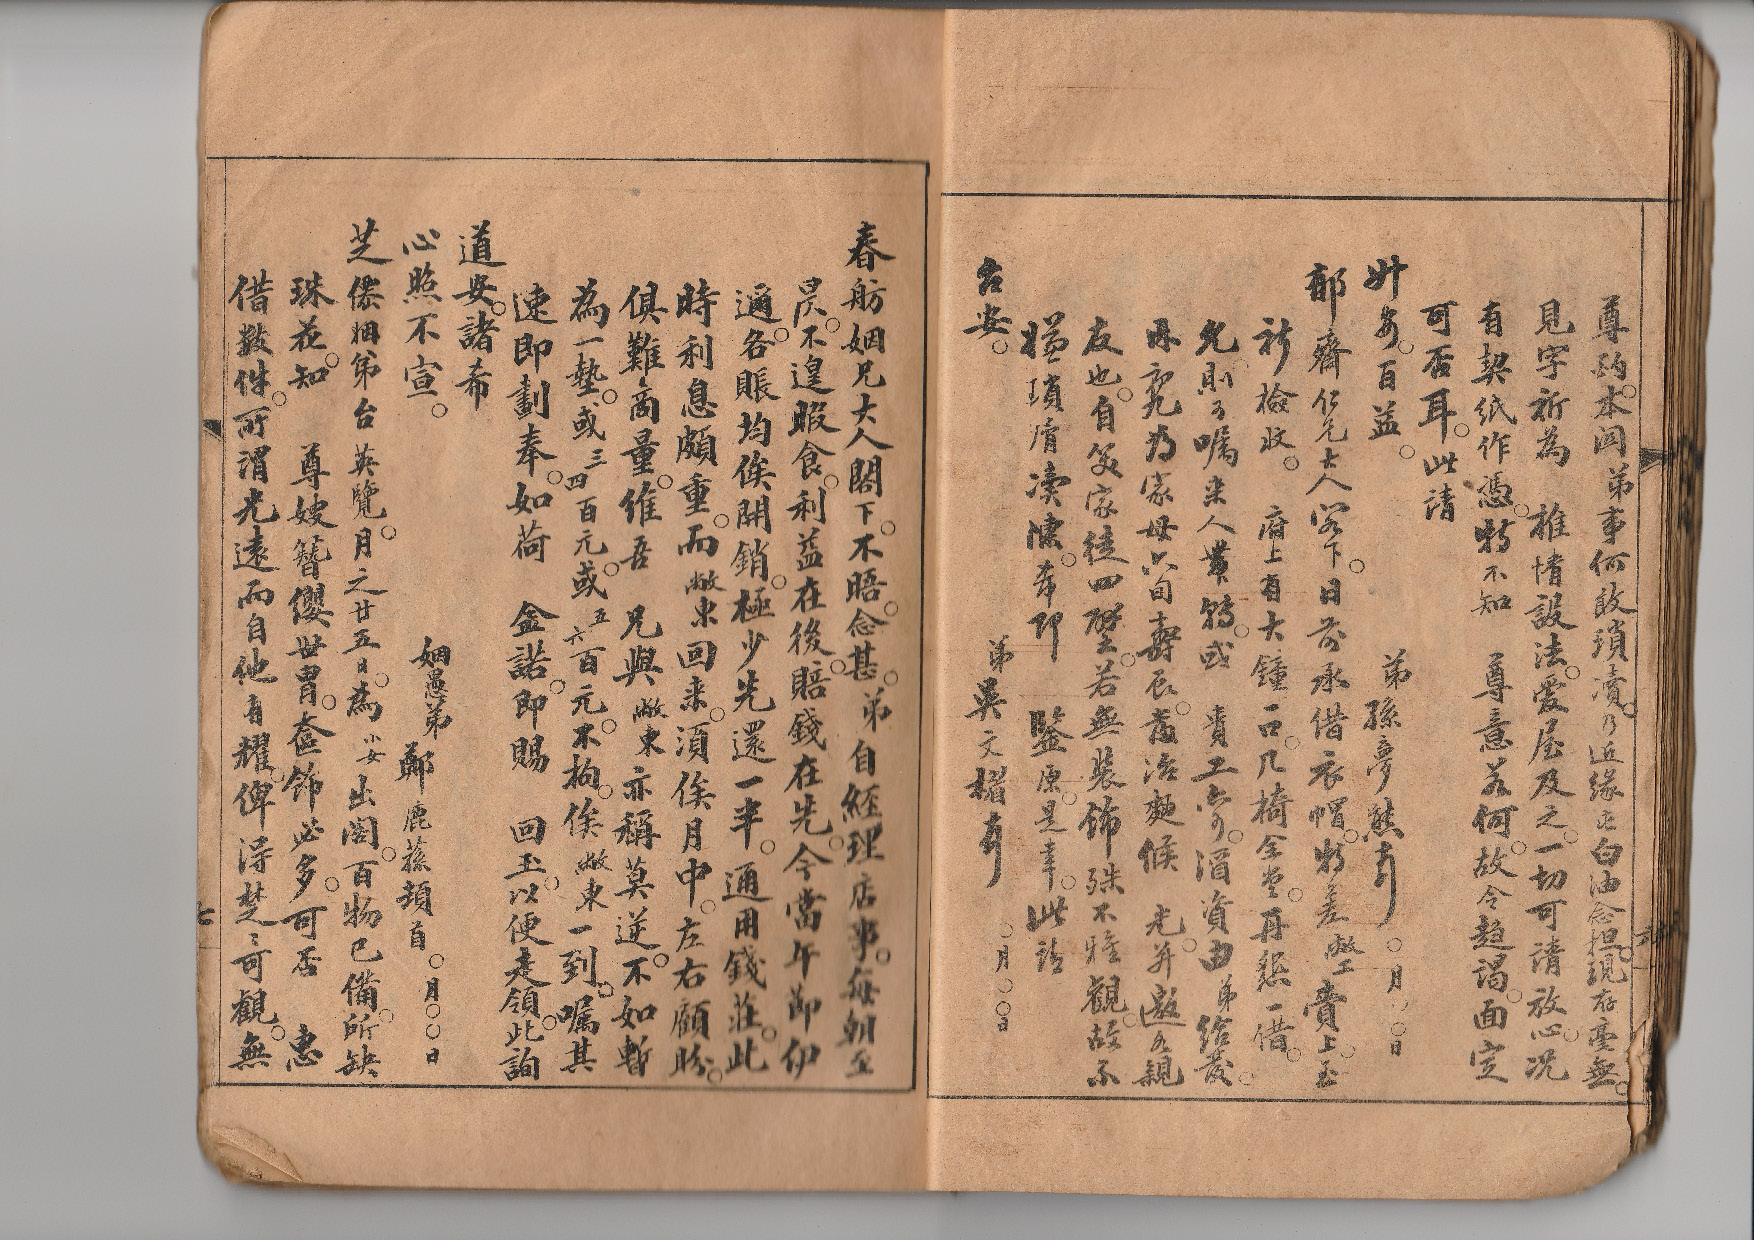 尊約。本冈弟事何敢瑣凟。乃近緣
見字祈為　推情設法。愛屋及之。一切可請放心。况
有契紙作憑。特不知　尊意若何。故令趋謁。面定
可否耳。此請
升安。百益。　弟孫夢熊
郁齋仁兄大人閣下。日前承借衣帽。特差敝工賫上。
祈檢收。府上有大鐘一口。几椅全堂。再懇一借。
允則可嘱来人帶轉。或　貴工亦可。酒資由弟給發。
家母六旬壽辰。
友也。自父家徒四壁。若無装飾殊不雅觀。故不
嫌瑣屑凟陳。希即　鑒原是幸。此請
台安。　弟吴文楷
春舫姻兄大人閣下。不晤念甚。弟自經理店事。每朝至
晨。不遑暇食。利益在後。賠錢在先。今當年節伊
邇。各賬均俟開銷。極少先還一半。通用錢莊。此
時利息頗重。而敝東回来。須俟月中。左右顧盼。
俱難商量。維吾　兄與敝東亦稱莫逆。不如暫
為一墊。或三四百元。或五六百元。不拘。俟敝東一到。嘱其
速即劃奉。如荷　金諾。即賜　回玉。以便走領。此詢
道安。諸希
心照不宣。
姻愚弟鄭鹿蓀頓首。〇月〇〇日
芝儂姻弟台英覽。月之廿五日。為小女出閣。百物已備。所缺
珠花。知　尊嫂簪纓世胄。奩飾必多。可否　惠
借數件。所謂光遠而自他有耀。俾得楚楚可觀。無
七